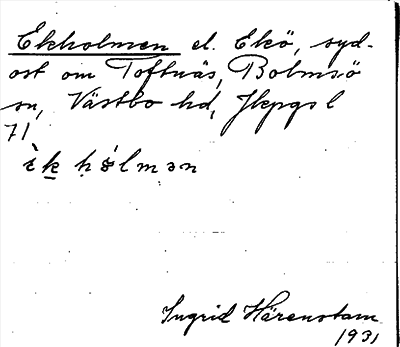 Ekholmen el. Ekö, syd-
ost om Toftnäs, Bolmsö
sn, Västbo hd, Jkpgs l
71
Ingrid Härenstam
1931